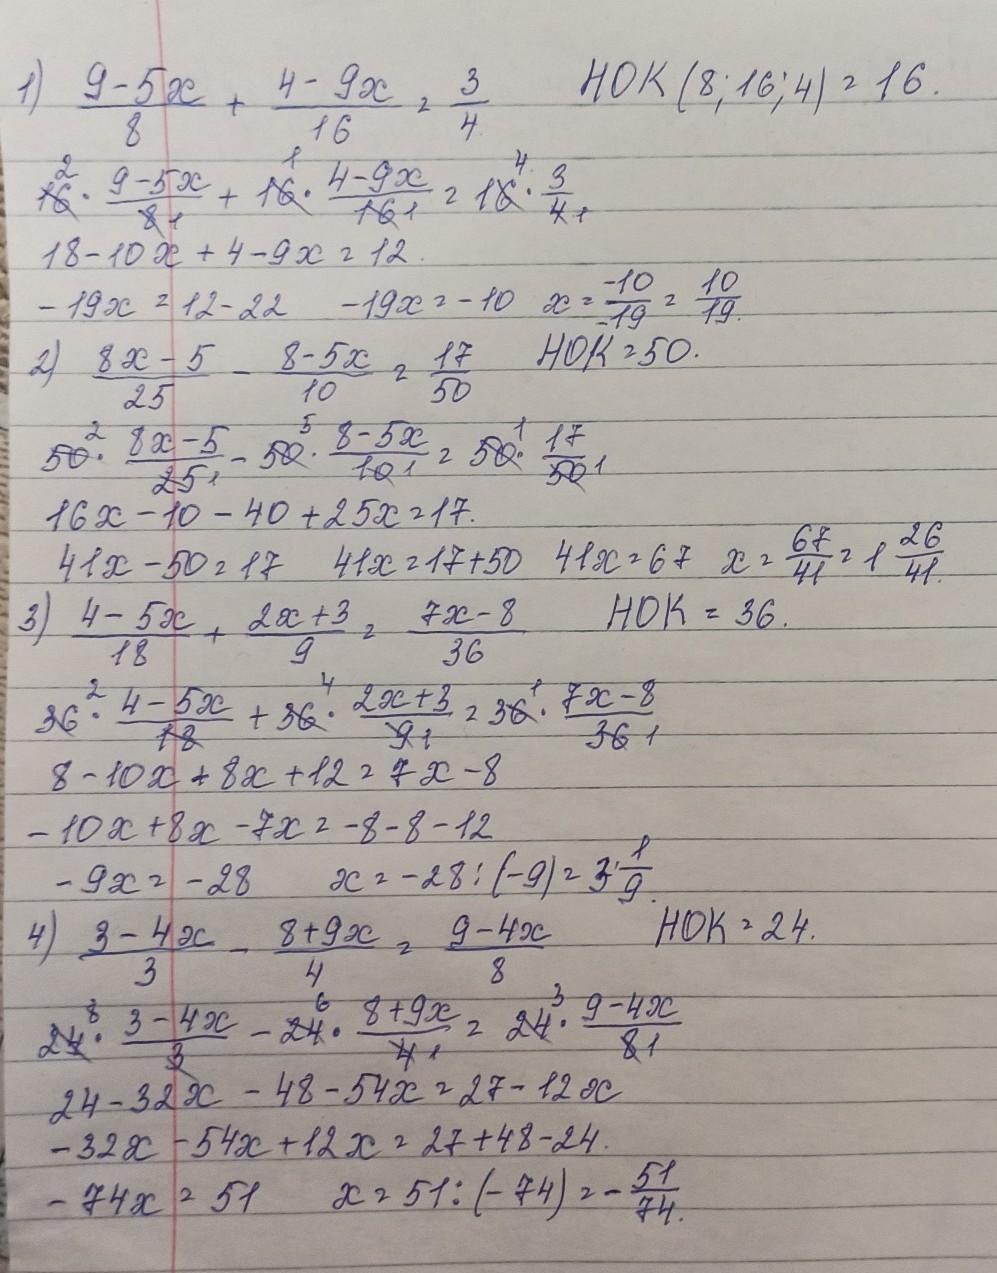 1) (9-5x)/8 + (4-9x)/16 = 3/4 НОК (8; 16; 4) = 16.
16² · (9-5x)/8₁ + 16¹ · (4-9x)/16₁ = 16⁴ · 3/4₁
18-10x+4-9x=12.
-19x=12-22 -19x=-10 x=-10/-19=10/19.
2) (8x-5)/25 - (8-5x)/10 = 17/50 НОК=50.
50² · (8x-5)/25₁ - 50⁵ · (8-5x)/10₁ = 50¹ · 17/50₁
16x-10-40+25x=17.
41x-50=17 41x=17+50 41x=67 x=67/41=1 26/41.
3) (4-5x)/18 + (2x+3)/9 = (7x-8)/36 НОК = 36.
36² · (4-5x)/18 + 36⁴ · (2x+3)/9₁ = 36¹ · (7x-8)/36₁
8-10x+8x+12=7x-8
-10x+8x-7x=-8-8-12
-9x=-28 x=-28:(-9)=3 1/9.
4) (3-4x)/3 - (8+9x)/4 = (9-4x)/8 НОК=24.
24⁸ · (3-4x)/3 - 24⁶ · (8+9x)/4₁ = 24³ · (9-4x)/8₁
24-32x-48-54x=27-12x
-32x-54x+12x=27+48-24.
-74x=51 x=51:(-74)=-51/74.